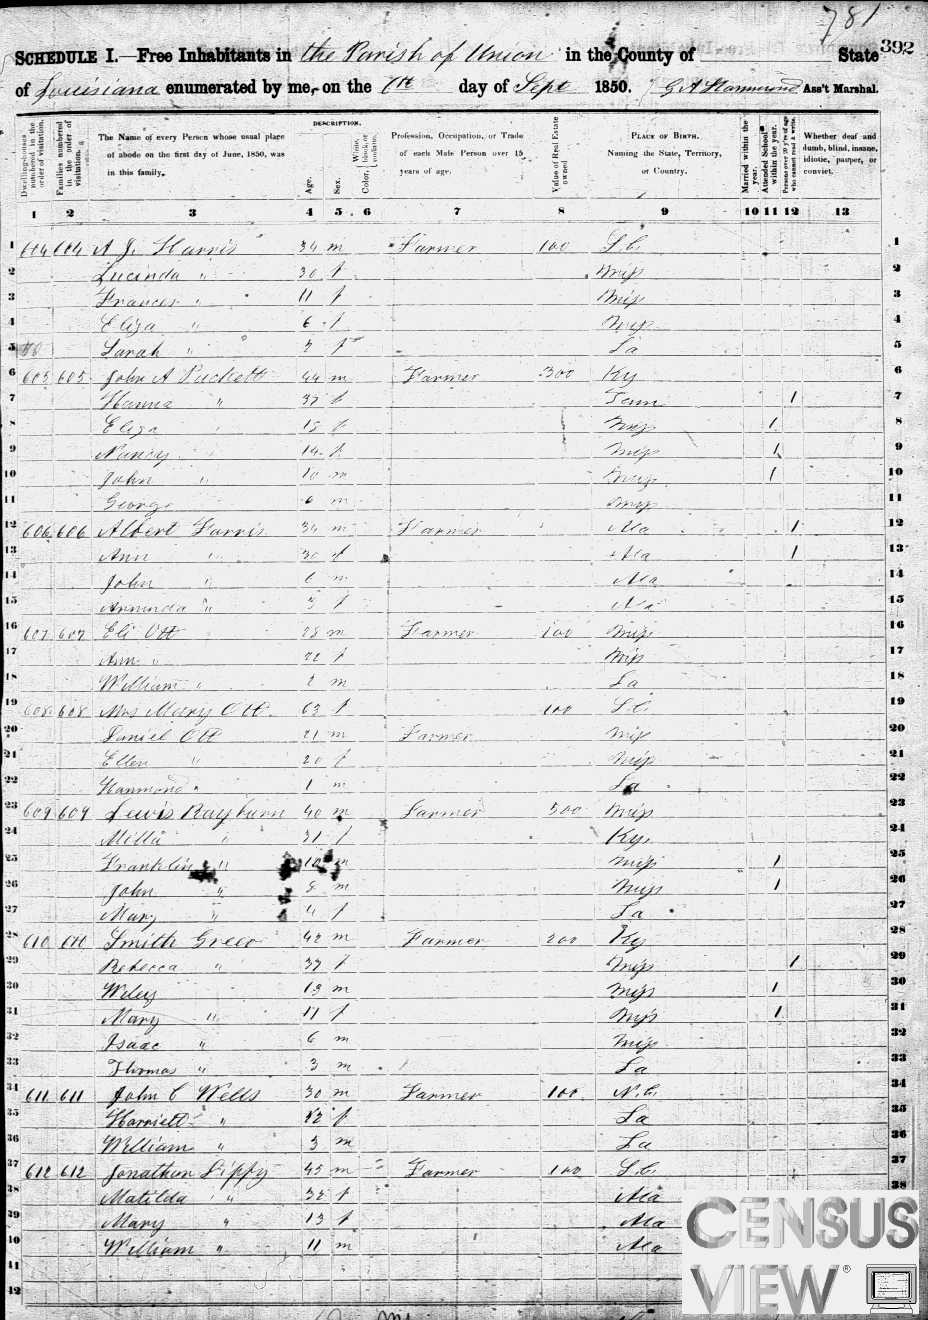 781
392
SCHEDULE I.—Free Inhabitants in the Parish of Union in the County of State
of Louisiana enumerated by me, on the 6th day of Sept 1850. G A Hammond Ass't Marshal.
Dwelling-houses numbered in the order of visitation.
Families numbered in the order of visitation.
The Name of every Person whose usual place of abode on the first day of June, 1850, was in this family.
DESCRIPTION.
Age.
Sex.
Color, White, black, or mulatto.
Profession, Occupation, or Trade of each Male Person over 15 years of age.
Value of Real Estate owned
PLACE OF BIRTH. Naming the State, Territory, or Country.
Married within the year.
Attended School within the year.
Persons over 20 y'rs of age who cannot read & write.
Whether deaf and dumb, blind, insane, idiotic, pauper, or convict.
1 2 3 4 5 6 7 8 9 10 11 12 13
1 604 604 A J. Harris 34 m Farmer 100 S.C. 1
2 Lucinda " 30 f Miss 2
3 Frances " 11 f Miss 3
4 Eliza " 6 f Miss 4
5 Sarah " 2 f La 5
6 605 605 John A Puckett 44 m Farmer 300 Ky 6
7 Hanna " 37 f Tenn 1 7
8 Eliza " f Miss 1 8
9 Nancy " 14 f Miss 1 9
10 John " 10 m Miss 1 10
11 George 6 m Miss 11
12 606 606 Albert Farris 34 m Farmer Ala 1 12
13 Ann " 30 f Ala 1 13
14 John " 6 m Ala 14
15 Arminda " 3 f Ala 15
16 607 607 Eli Ott m Farmer 100 Miss 16
17 Ann " 22 f Miss 17
18 William " 2 m La 18
19 608 608 Mrs Mary Ott 63 f 100 S.C. 19
20 Daniel Ott 21 m Farmer Miss 20
21 Ellen " 20 f Miss 21
22 Hammond " 1 m La 22
23 609 609 Lewis Rayburn 40 m Farmer 500 Miss 23
24 Milla " 31 f Ky. 24
25 Franklin " 10 m Miss 1 25
26 John " 8 m Miss 1 26
27 Mary " 4 f La 27
28 610 610 Smith Green 42 m Farmer 200 Ky 28
29 Rebecca " 37 f Miss 1 29
30 Wiley 13 m Miss 1 30
31 Mary " 11 f Miss 1 31
32 Isaac " 6 m Miss 32
33 Thomas " 3 m La 33
34 611 611 John C Wells 30 m Farmer 100 N.C. 34
35 Harriett " f La 35
36 William " 3 m La 36
37 612 612 Jonathan Lippy 45 m Farmer 100 S.C. 37
38 Matilda " 32 f Ala 38
39 Mary " 13 f Ala
40 William " 11 m Ala
41
42
CENSUS
VIEW®